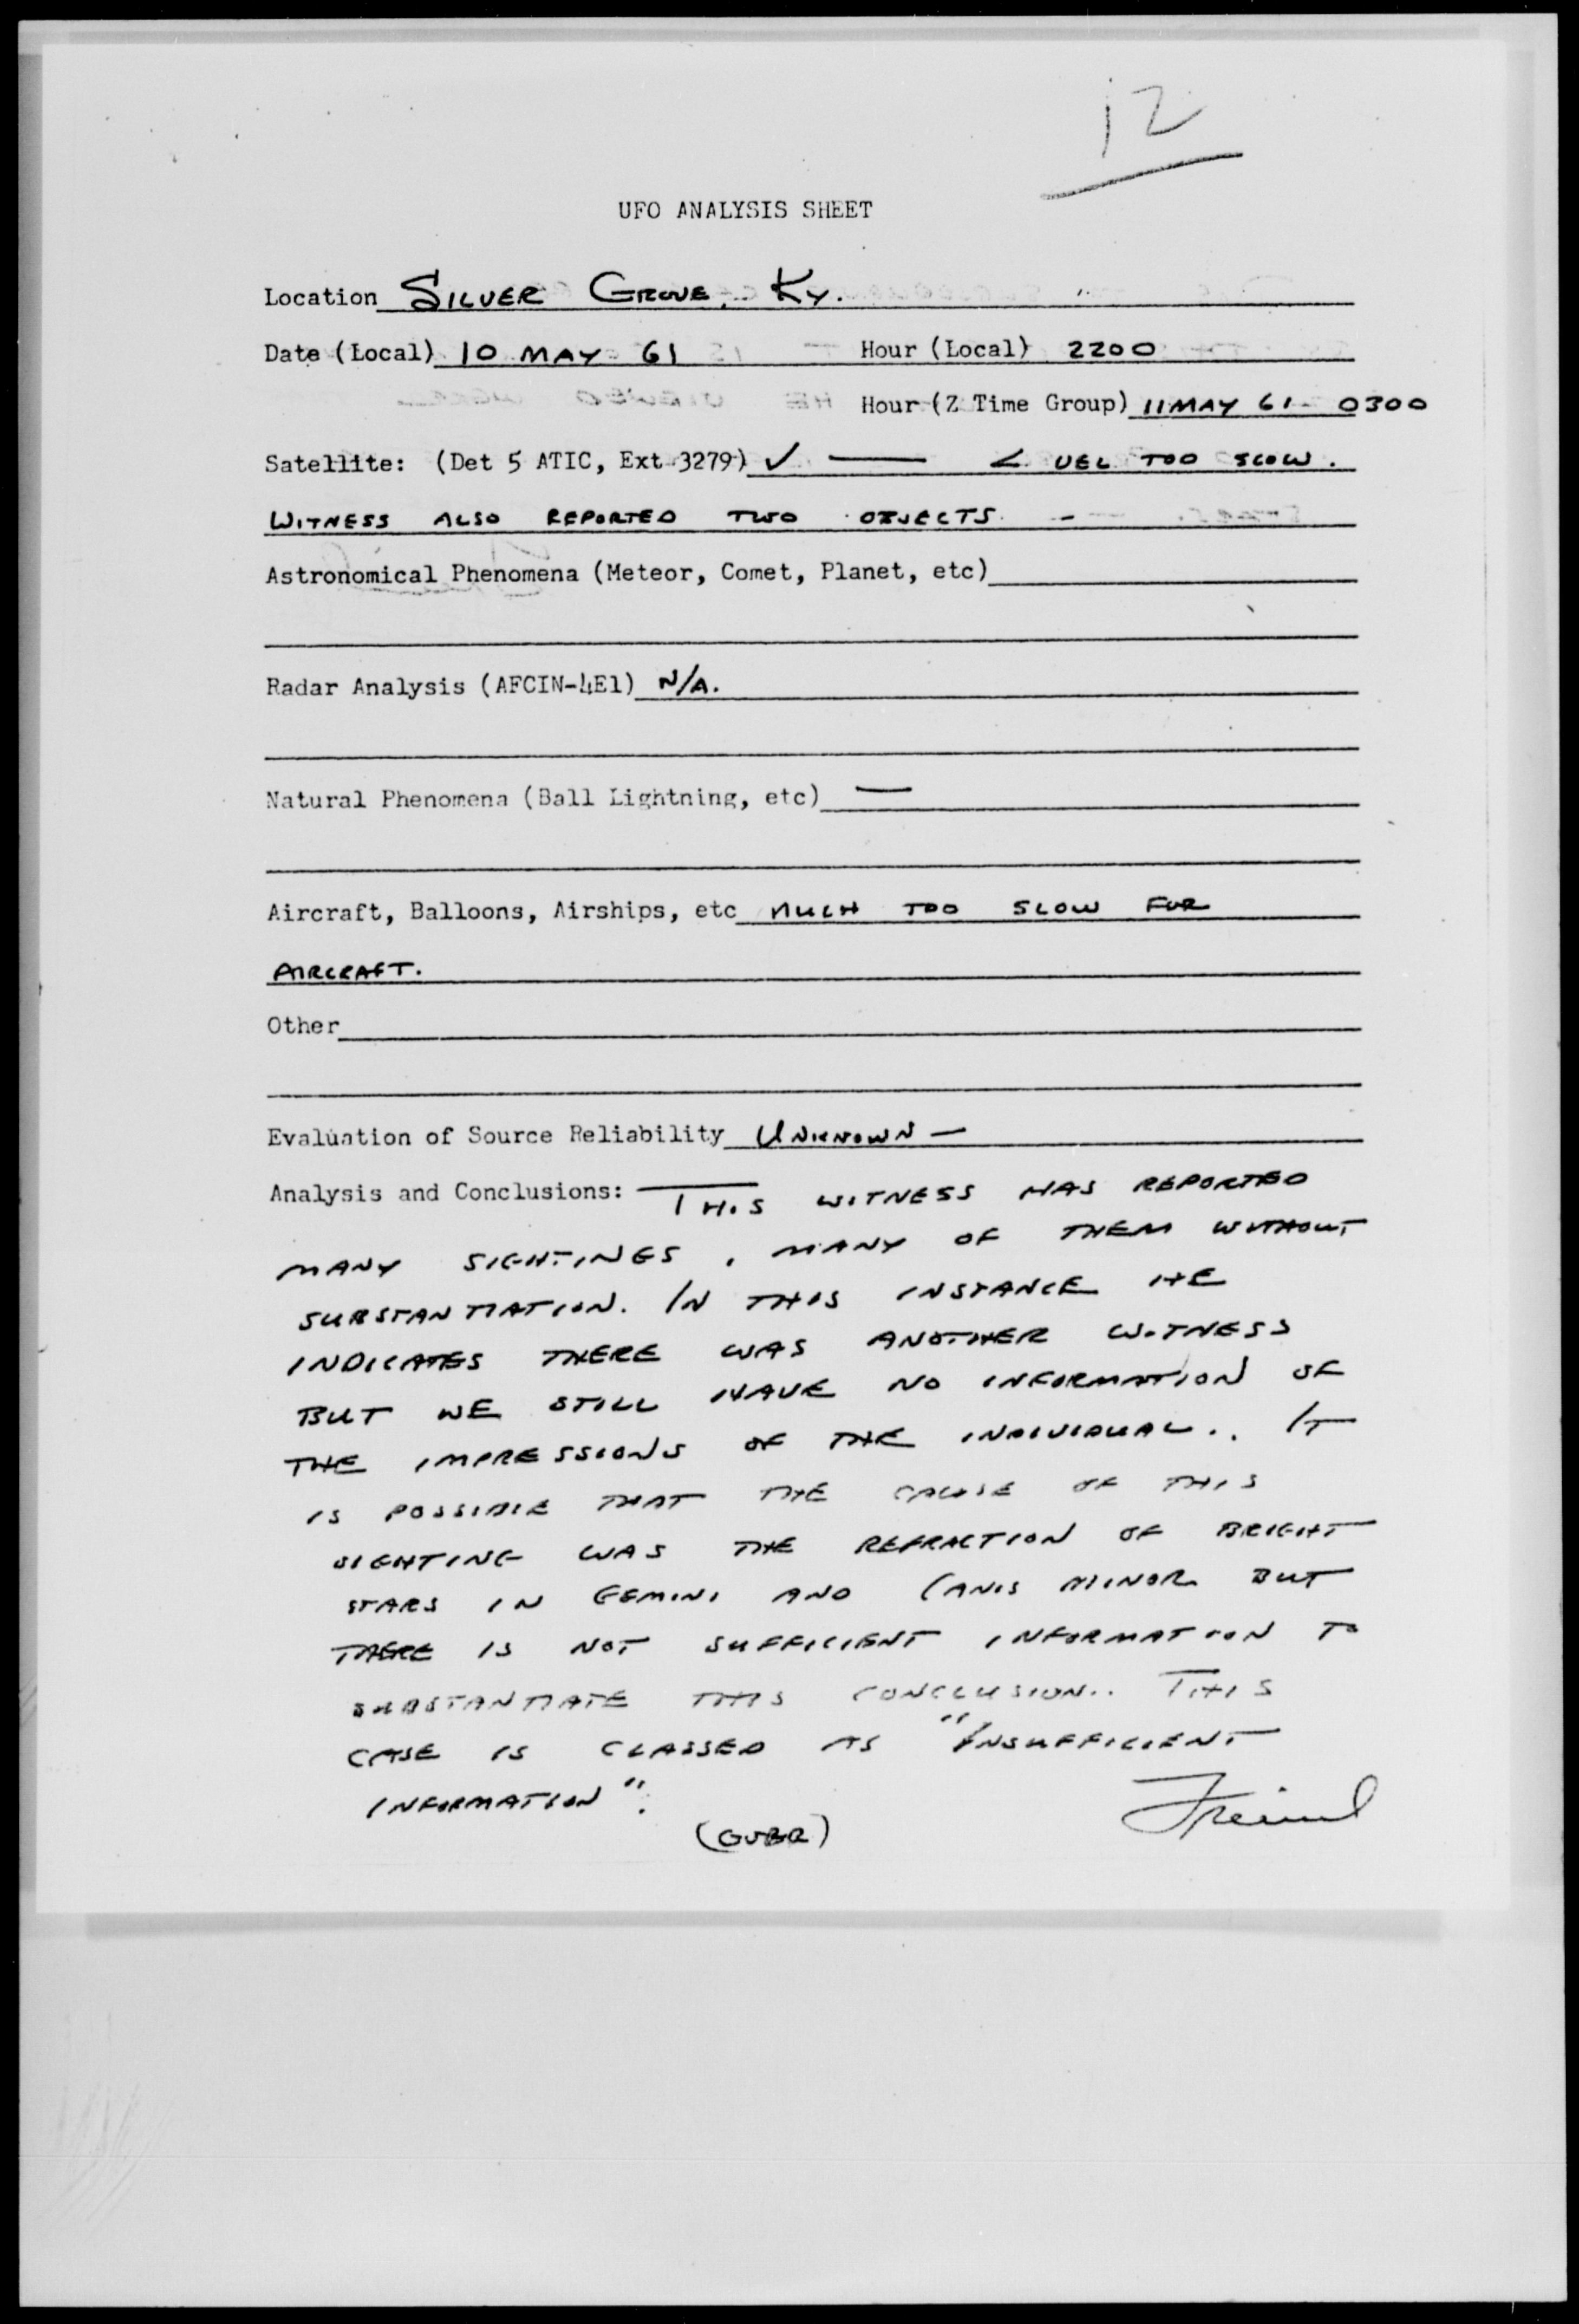 12
UFO ANALYSIS SHEET
Location SILVER GROVE, KY.
Date (Local) 10 MAY 61 Hour (Local) 2200
Hour (Z Time Group) 11 MAY 61 - 0300
Satellite: (Det 5 ATIC, Ext 3279) ✓ — < VEL TOO SLOW.
WITNESS ALSO REPORTED TWO OBJECTS. -
Astronomical Phenomena (Meteor, Comet, Planet, etc)
Radar Analysis (AFCIN-4E1) N/A.
Natural Phenomena (Ball Lightning, etc) —
Aircraft, Balloons, Airships, etc MUCH TOO SLOW FOR
AIRCRAFT.
Other
Evaluation of Source Reliability UNKNOWN —
Analysis and Conclusions: THIS WITNESS HAS REPORTED
MANY SIGHTINGS, MANY OF THEM WITHOUT
SUBSTANTIATION. IN THIS INSTANCE HE
INDICATES THERE WAS ANOTHER WITNESS
BUT WE STILL HAVE NO INFORMATION OF
THE IMPRESSIONS OF THE INDIVIDUAL.. IT
IS POSSIBLE THAT THE CAUSE OF THIS
SIGHTING WAS THE REFRACTION OF BRIGHT
STARS IN GEMINI AND CANIS MINOR BUT
THERE IS NOT SUFFICIENT INFORMATION TO
SUBSTANTIATE THIS CONCLUSION.. THIS
CASE IS CLASSED AS "INSUFFICIENT
INFORMATION".
(OVER)